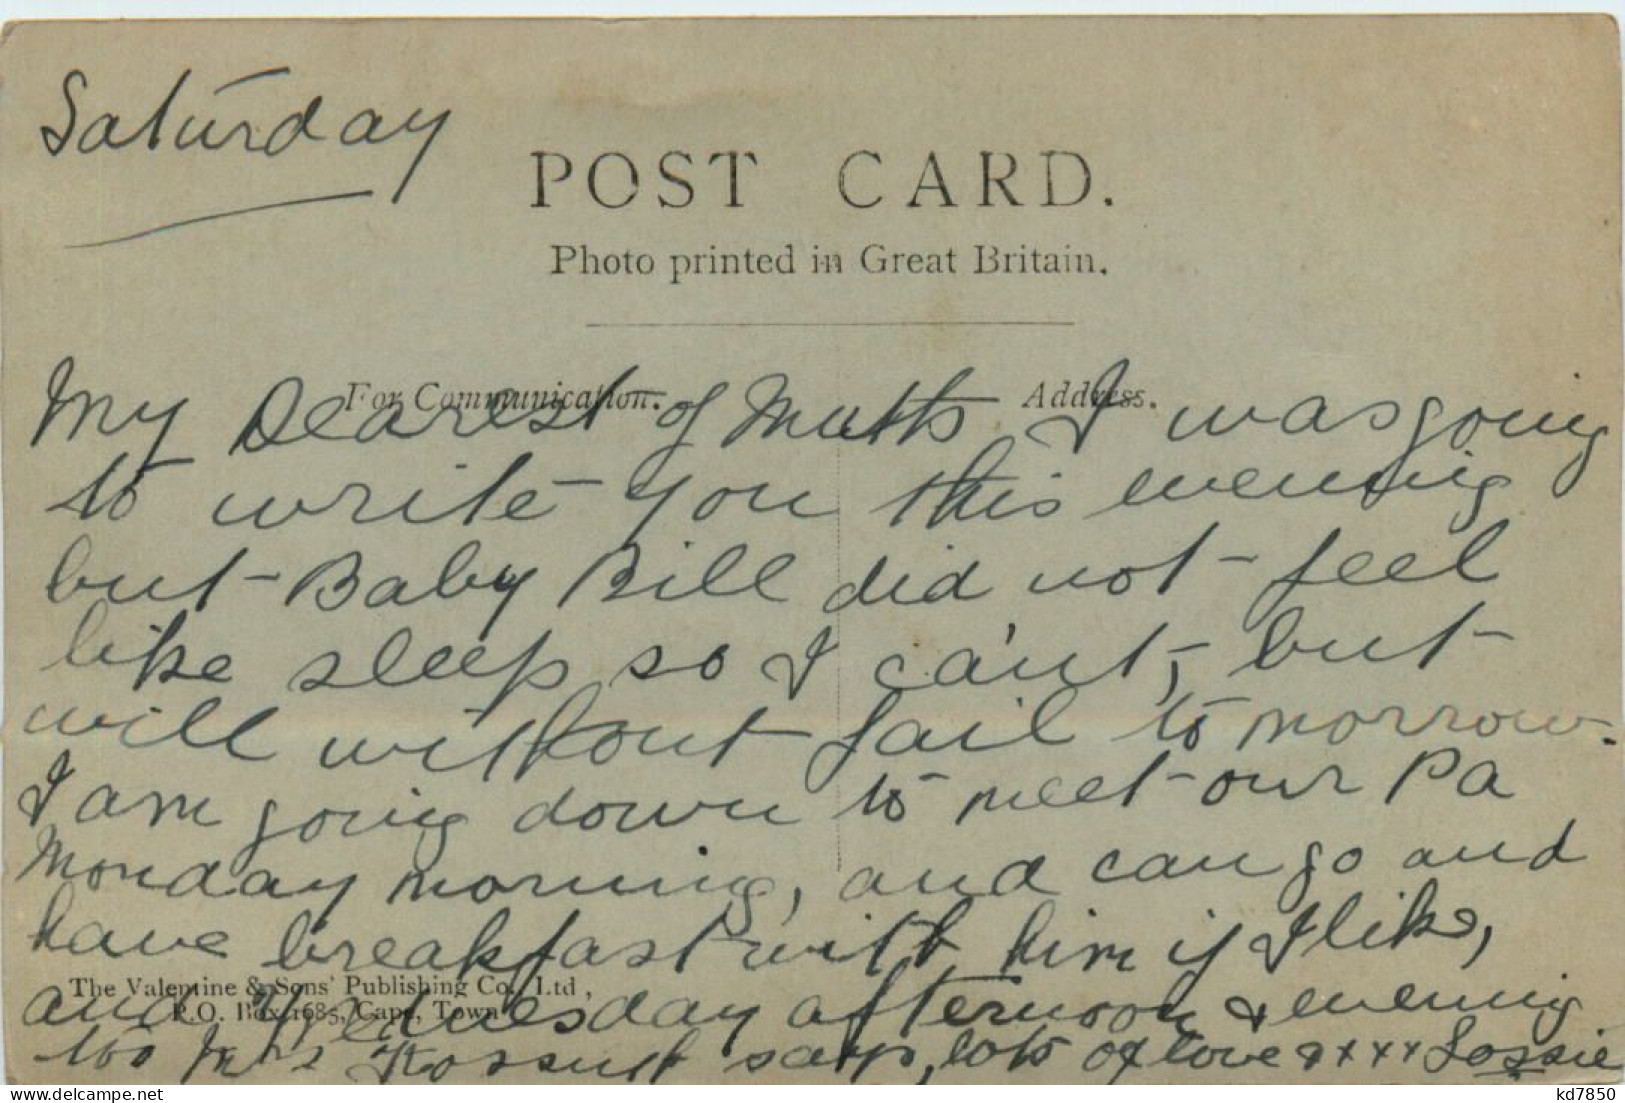 Saturday
POST CARD.
Photo printed in Great Britain.
For Communication.
Address.
My Dearest of Mutts I was going
to write you this evening
but Baby Bill did not feel
like sleep so I ca'nt, but
will without fail to morrow.
I am going down to meet our Pa
Monday morning, and can go and
have breakfast with him if I like,
and Wednesday afternoon & evening
too Mrs says, lots of love xxxx Lossie
The Valentine & Sons' Publishing Co., Ltd,
P.O. Box 1685, Cape, Town
delcampe.net
kd7850